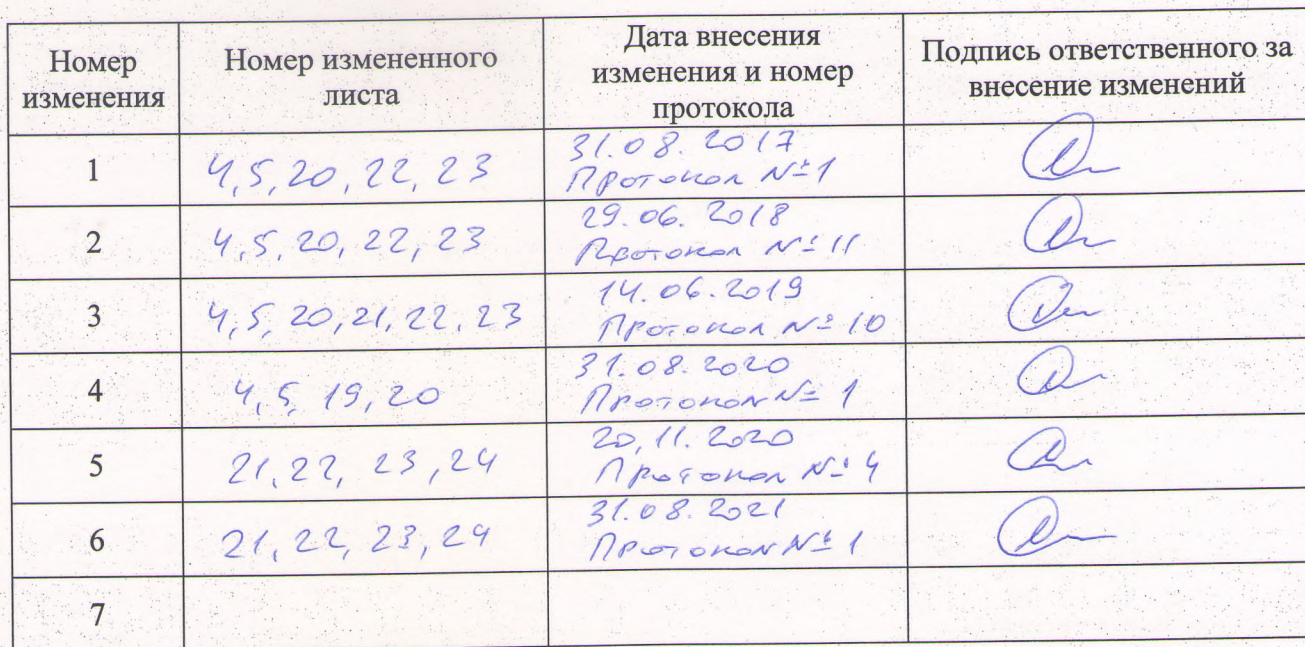 Номер изменения
Номер измененного листа
Дата внесения изменения и номер протокола
Подпись ответственного за внесение изменений
1
4,5,20,22,23
31.08.2017
Протокол №1
2
4,5,20,22,23
29.06.2018
Протокол №11
3
4,5,20,21,22,23
14.06.2019
Протокол №10
4
4,5,19,20
31.08.2020
Протокол №1
5
21,22,23,24
20,11.2020
Протокол №4
6
21,22,23,24
31.08.2021
Протокол №1
7